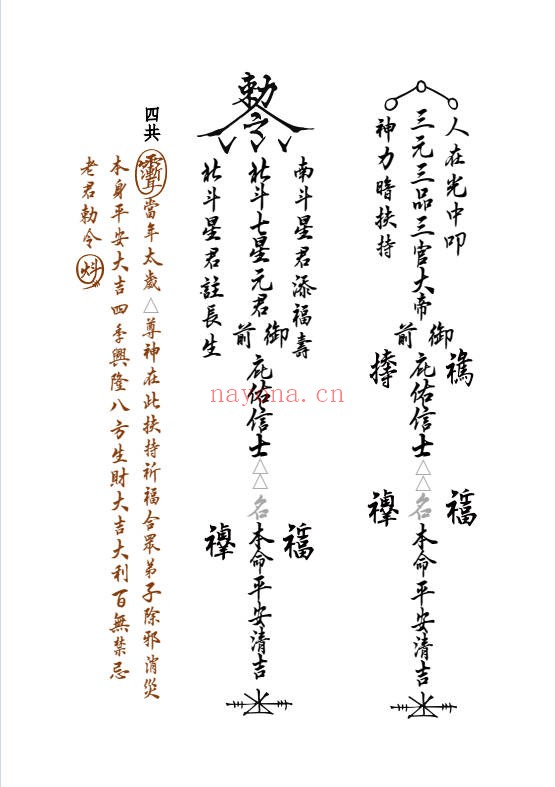 人在光中叩
三元三品三官大帝
神力暗扶持
御前
庇佑信士△△名本命平安清吉
福
勅令
南斗星君添福壽
北斗七星元君
北斗星君註長生
御前
庇佑信士△△名本命平安清吉
福
四共
當年太歲△尊神在此扶持祈福合眾弟子除邪消災
本身平安大吉四季興隆八方生財大吉大利百無禁忌
老君勅令
nayona.cn